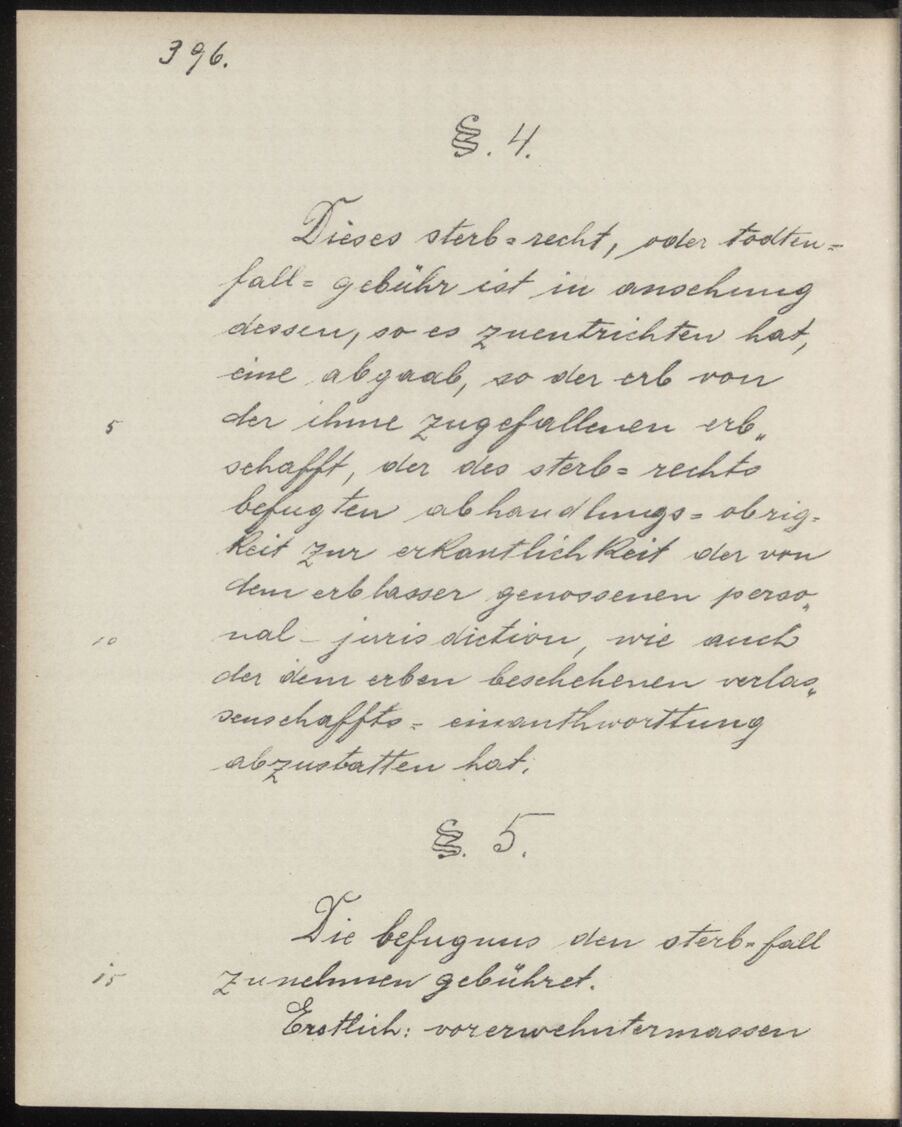 396.
§. 4.
Dieses sterb=recht, oder todten=
fall=gebühr ist in ansehung
dessen, so es zuentrichten hat,
eine abgaab, so der erb von
5 der ihme zugefallenen erb„
schafft, der des sterb=rechts
befugten abhandlungs=obrig=
keit zur erkantlichkeit der von
dem erblasser genossenen perso„
10 nal-jurisdiction, wie auch
der dem erben beschehenen verlas„
senschaffts=einanthworttung
abzustatten hat.
§. 5.
Die befugnus den sterb=fall
15 zunehmen gebühret.
Erstlich: vorerwehntermassen